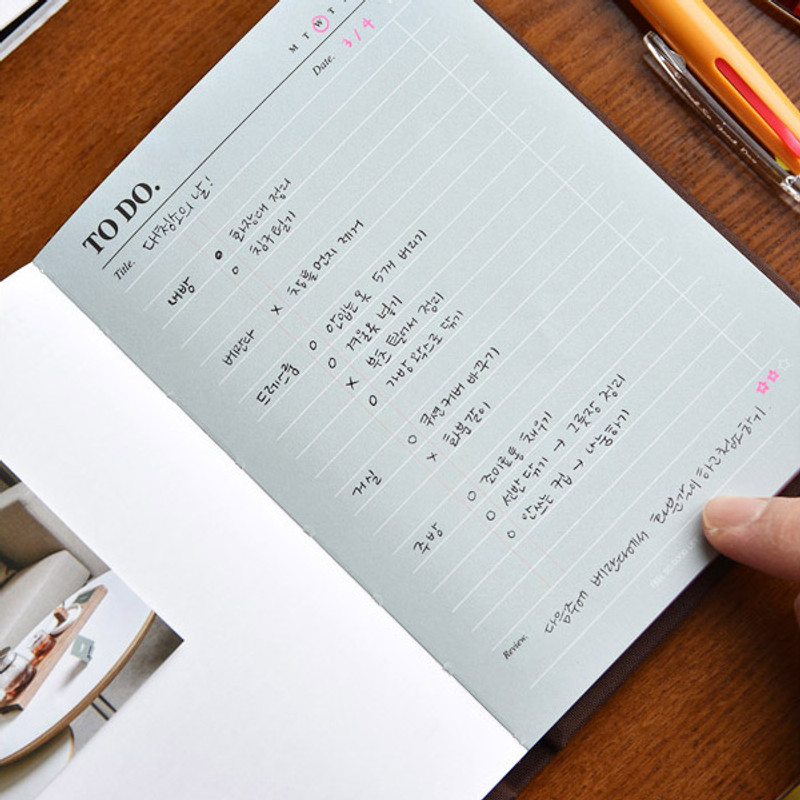 M T W T
Date. 3/4
TO DO.
Title. 대청소의 날!
내방 ● 화장대 정리
○ 침구털기
베란다 × 창틀 먼지 제거
드레스룸 ○ 안입는 옷 5개 버리기
○ 겨울옷 넣기
× 부츠 털어서 정리
○ 가방 왁스로 닦기
거실 ○ 쿠션커버 바꾸기
× 화분갈이
주방 ○ 조미료통 채우기
○ 선반 닦기 → 그릇장 정리
○ 안쓰는 컵 → 나눔하기
Review. 다음주에 베란다에서 화분갈이 하고 청소하기.